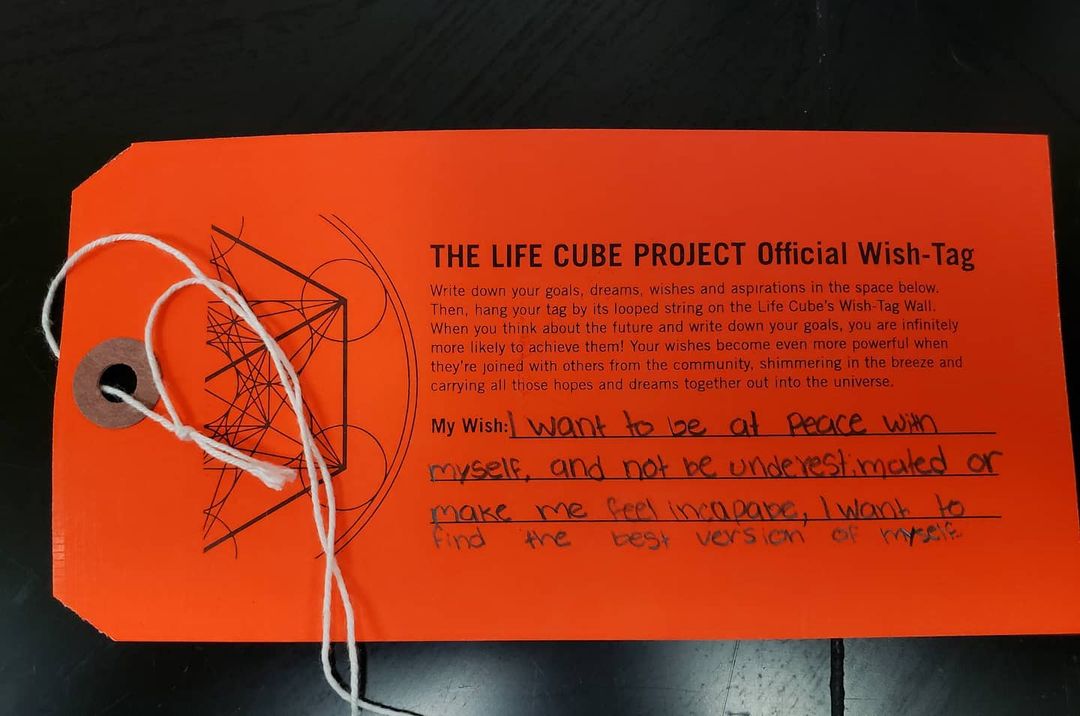 THE LIFE CUBE PROJECT Official Wish-Tag
Write down your goals, dreams, wishes and aspirations in the space below.
Then, hang your tag by its looped string on the Life Cube's Wish-Tag Wall.
When you think about the future and write down your goals, you are infinitely
more likely to achieve them! Your wishes become even more powerful when
they're joined with others from the community, shimmering in the breeze and
carrying all those hopes and dreams together out into the universe.
My Wish: I want to be at peace with
myself, and not be underestimated or
make me feel incapabe, I want to
find the best version of myself